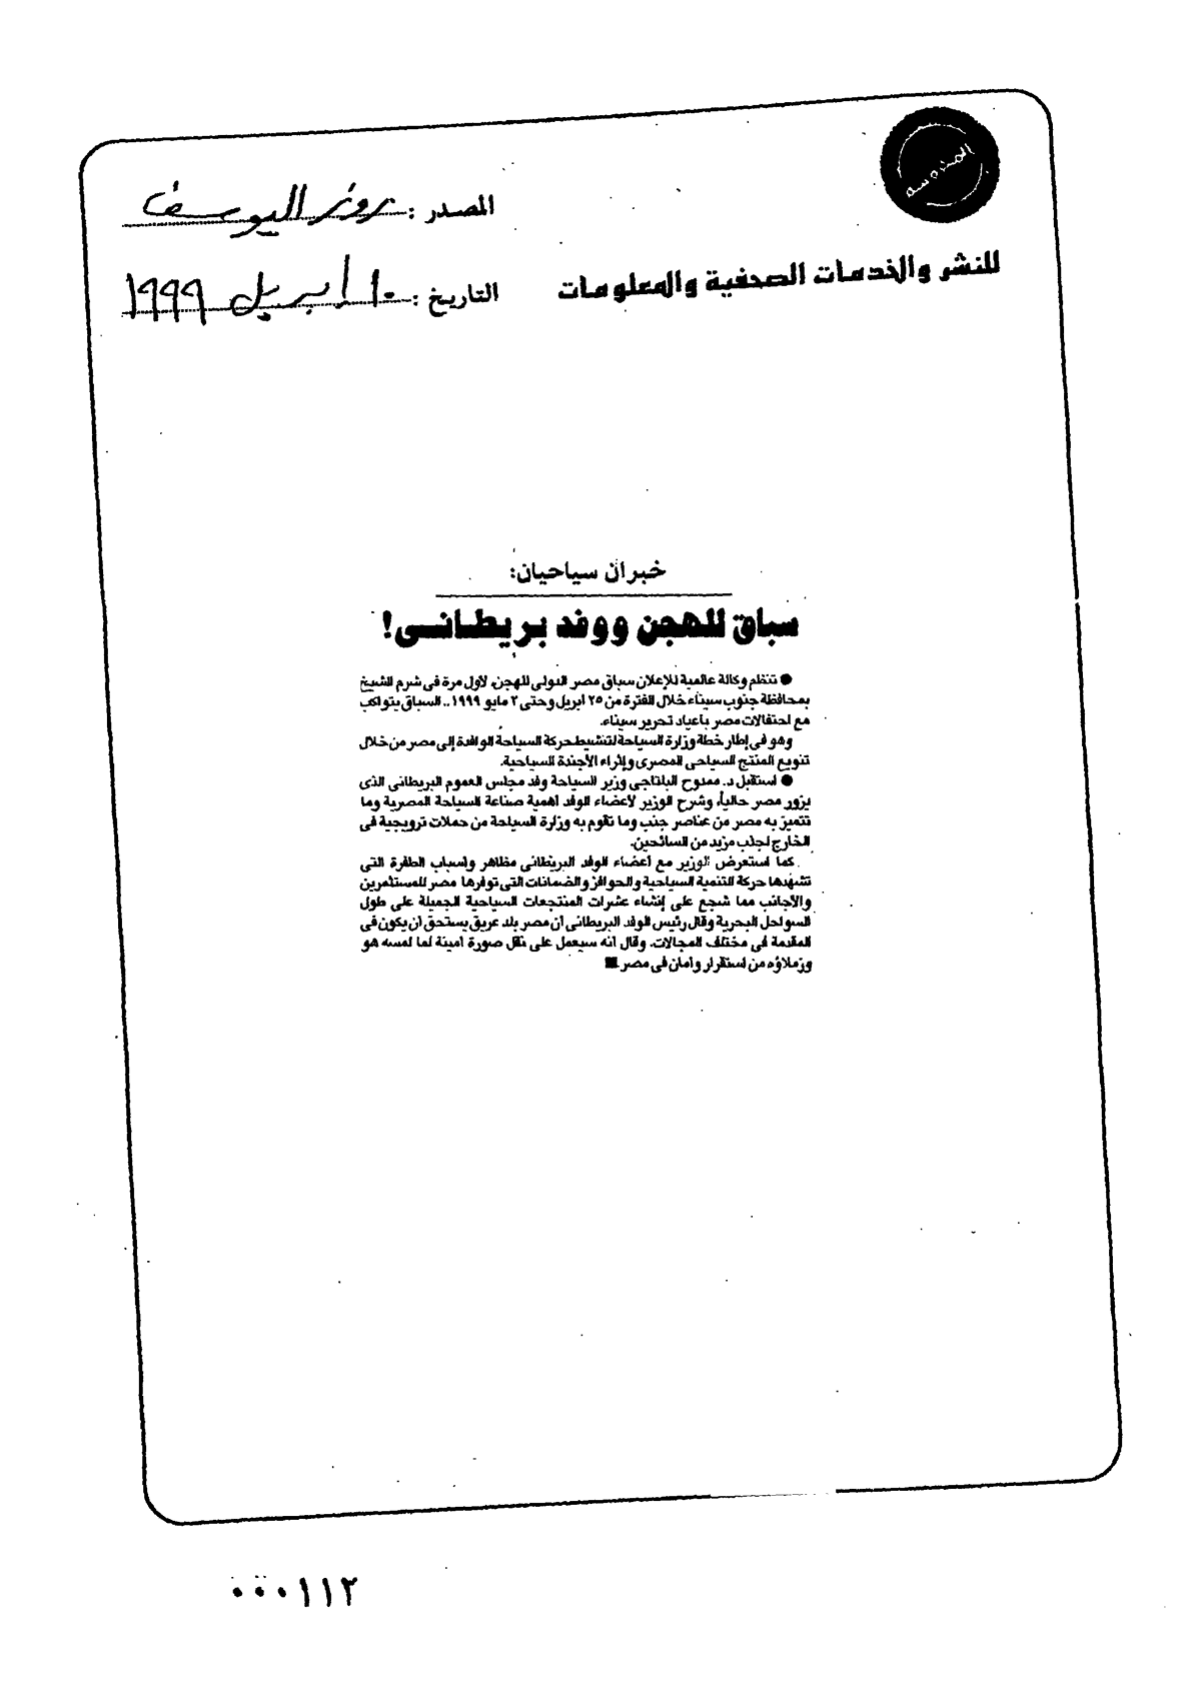 المدرسة
المصدر : روز اليوسف
للنشر والخدمات الصحفية والمعلومات
التاريخ : ١٠ أبريل ١٩٩٩
خبران سياحيان:
سباق للهجن ووفد بريطانى!
● تنظم وكالة عالمية للإعلان سباق مصر الدولى للهجن، لأول مرة فى شرم الشيخ
بمحافظة جنوب سيناء خلال الفترة من ٢٥ أبريل وحتى ٢ مايو ١٩٩٩.. السباق يتواكب
مع احتفالات مصر بأعياد تحرير سيناء.
وهو فى إطار خطة وزارة السياحة لتنشيط حركة السياحة الوافدة إلى مصر من خلال
تنويع المنتج السياحى المصرى وإثراء الأجندة السياحية.
● استقبل د. ممدوح البلتاجى وزير السياحة وفد مجلس العموم البريطانى الذى
يزور مصر حالياً، وشرح الوزير لأعضاء الوفد أهمية صناعة السياحة المصرية وما
تتميز به مصر من عناصر جذب وما تقوم به وزارة السياحة من حملات ترويجية فى
الخارج لجذب مزيد من السائحين.
كما استعرض الوزير مع أعضاء الوفد البريطانى مظاهر وأسباب الطفرة التى
تشهدها حركة التنمية السياحية والحوافز والضمانات التى توفرها مصر للمستثمرين
والأجانب مما شجع على إنشاء عشرات المنتجعات السياحية الجميلة على طول
السواحل البحرية وقال رئيس الوفد البريطانى أن مصر بلد عريق يستحق أن يكون فى
المقدمة فى مختلف المجالات. وقال أنه سيعمل على نقل صورة أمينة لما لمسه هو
وزملاؤه من استقرار وأمان فى مصر ■
٠٠٠١١٢